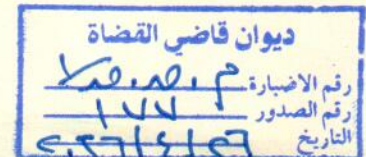 ديوان قاضي القضاة
رقم الاضبارة
رقم الصدور ١٧٧
التاريخ ٢٠٢٦/٤/٢٦